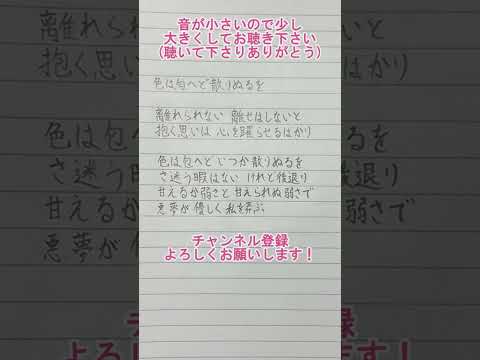 音が小さいので少し
大きくしてお聴き下さい
(聴いて下さりありがとう)
色は匂へど散りぬるを
離れられない 離せはしないと
抱く思いは 心を躍らせるばかり
色は匂へど いつか散りぬるを
さ迷う暇はない けれど後退り
甘えるか弱さと 甘えられぬ弱さで
悪夢が 優しく 私を弄ぶ
チャンネル登録
よろしくお願いします！